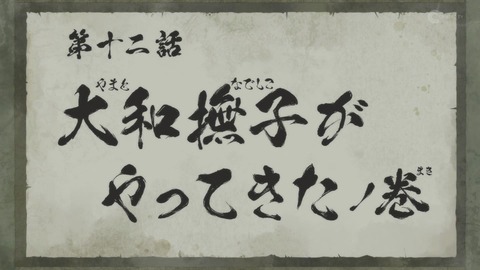 第十二話
大和撫子が
やってきたノ巻
やまと
なでしこ
まき